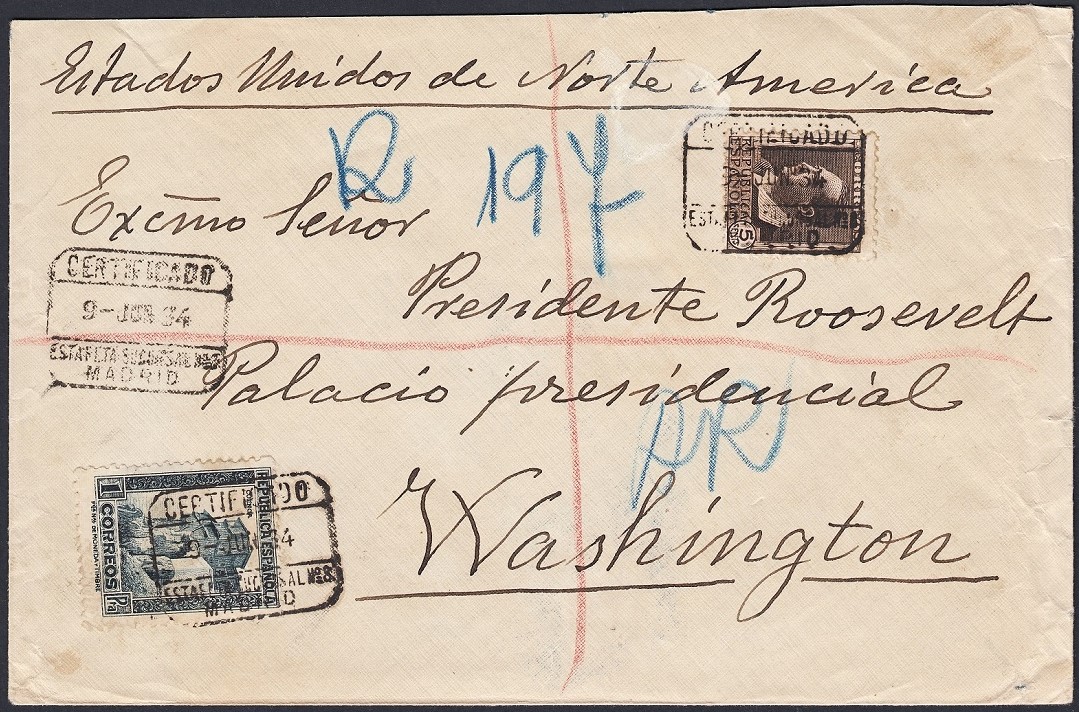 Estados Unidos de Norte America
R 197
Excmo Señor
Presidente Roosevelt
Palacio presidencial
AR
Washington
CERTIFICADO
9-JUN 34
ESTAFETA SUCURSAL Nº8
MADRID
CERTIFICADO
34
MADRID
REPUBLICA
ESPAÑOLA
5
CERTIFICADO
9-JUN 34
ESTAFETA SUCURSAL Nº8
MADRID
1 CORREOS Pta
REPUBLICA ESPAÑOLA